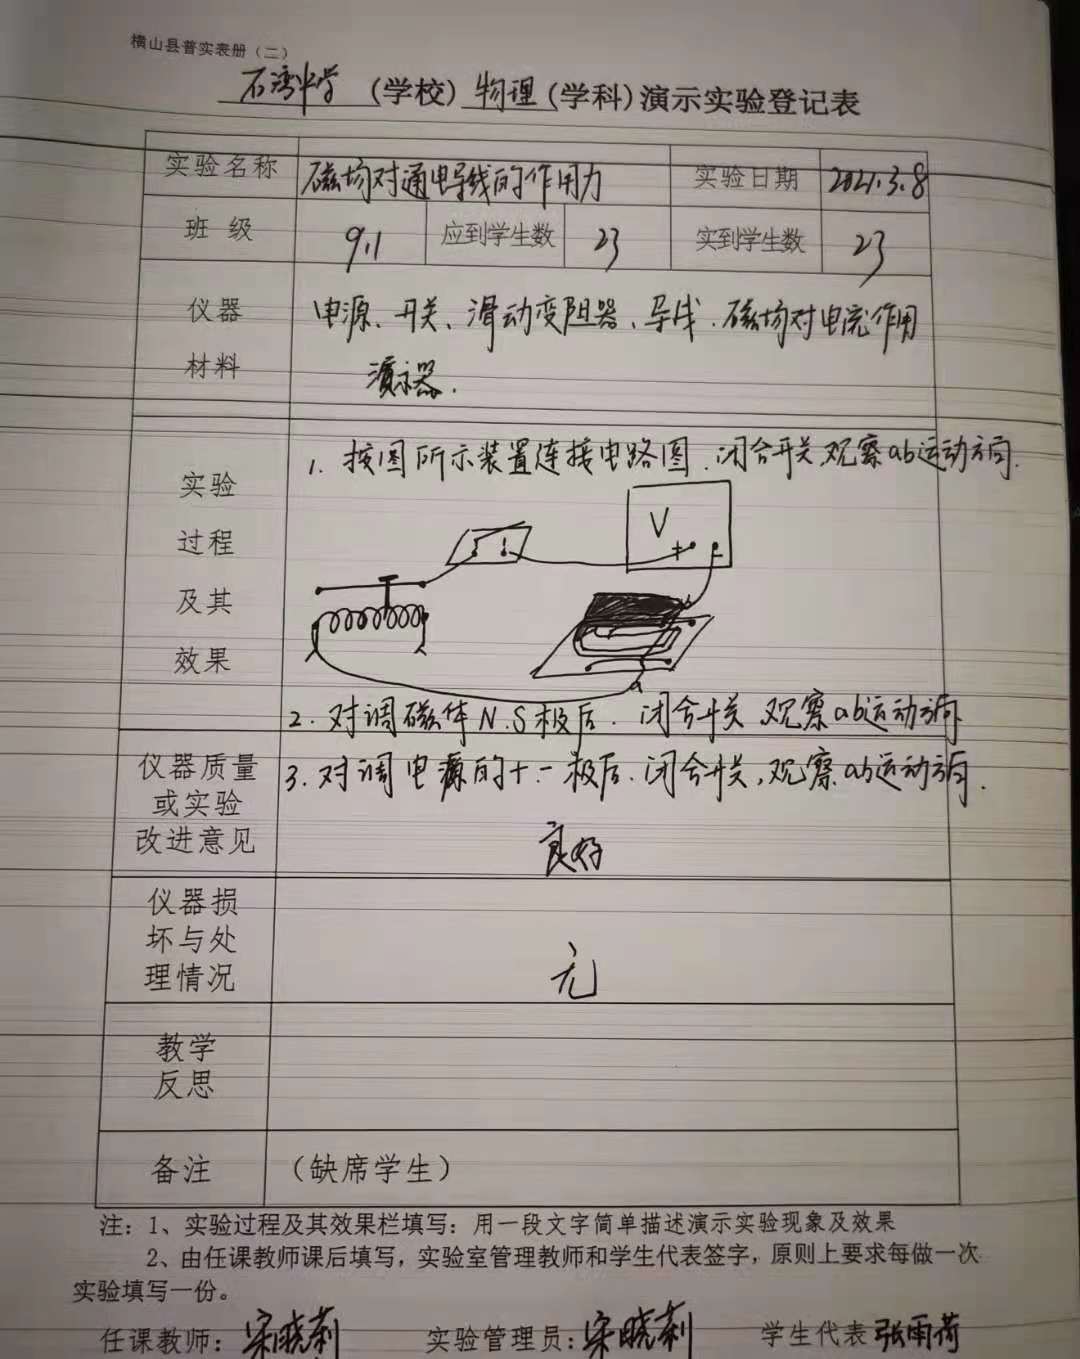 横山县普实表册（二）
石湾中学（学校）物理（学科）演示实验登记表
实验名称 磁场对通电导线的作用力 实验日期 2021.3.8
班 级 9.1 应到学生数 23 实到学生数 23
仪器 电源、开关、滑动变阻器、导线、磁场对电流作用
材料 演示器.
实验 1. 按图所示装置连接电路图.闭合开关观察ab运动方向.
过程
及其
效果
V
+ -
b
a
2. 对调磁体N.S极后.闭合开关 观察ab运动方向
仪器质量 3. 对调电源的+.-极后.闭合开关,观察ab运动方向.
或实验
改进意见 良好
仪器损
坏与处
理情况 无
教学
反思
备注 （缺席学生）
注：1、实验过程及其效果栏填写：用一段文字简单描述演示实验现象及效果
2、由任课教师课后填写，实验室管理教师和学生代表签字，原则上要求每做一次
实验填写一份。
任课教师：宋晓莉 实验管理员：宋晓莉 学生代表 张雨荷